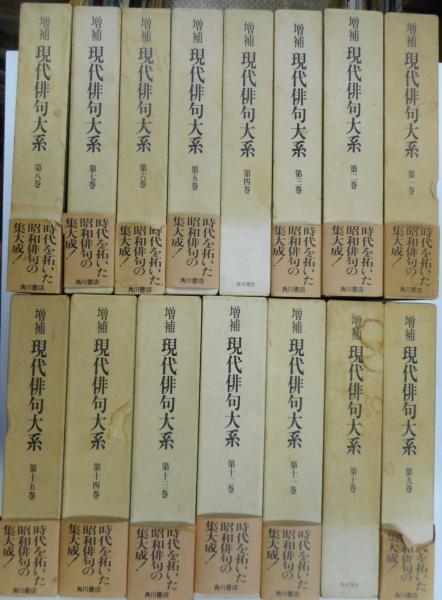 増補
現代俳句大系
第一巻
時代を拓いた
昭和俳句の
集大成！
角川書店
増補
現代俳句大系
第二巻
時代を拓いた
昭和俳句の
集大成！
角川書店
増補
現代俳句大系
第三巻
時代を拓いた
昭和俳句の
集大成！
角川書店
増補
現代俳句大系
第四巻
角川書店
増補
現代俳句大系
第五巻
時代を拓いた
昭和俳句の
集大成！
角川書店
増補
現代俳句大系
第六巻
時代を拓いた
昭和俳句の
集大成！
角川書店
増補
現代俳句大系
第七巻
時代を拓いた
昭和俳句の
集大成！
角川書店
増補
現代俳句大系
第八巻
時代を拓いた
昭和俳句の
集大成！
角川書店
増補
現代俳句大系
第九巻
を拓いた
昭和俳句の
集大成！
角川書店
増補
現代俳句大系
第十巻
角川書店
増補
現代俳句大系
第十一巻
時代を拓いた
昭和俳句の
集大成！
角川書店
増補
現代俳句大系
第十二巻
時代を拓いた
昭和俳句の
集大成！
角川書店
増補
現代俳句大系
第十三巻
時代を拓いた
昭和俳句の
集大成！
角川書店
増補
現代俳句大系
第十四巻
時代を拓いた
昭和俳句の
集大成！
角川書店
増補
現代俳句大系
第十五巻
時代を拓いた
昭和俳句の
集大成！
角川書店